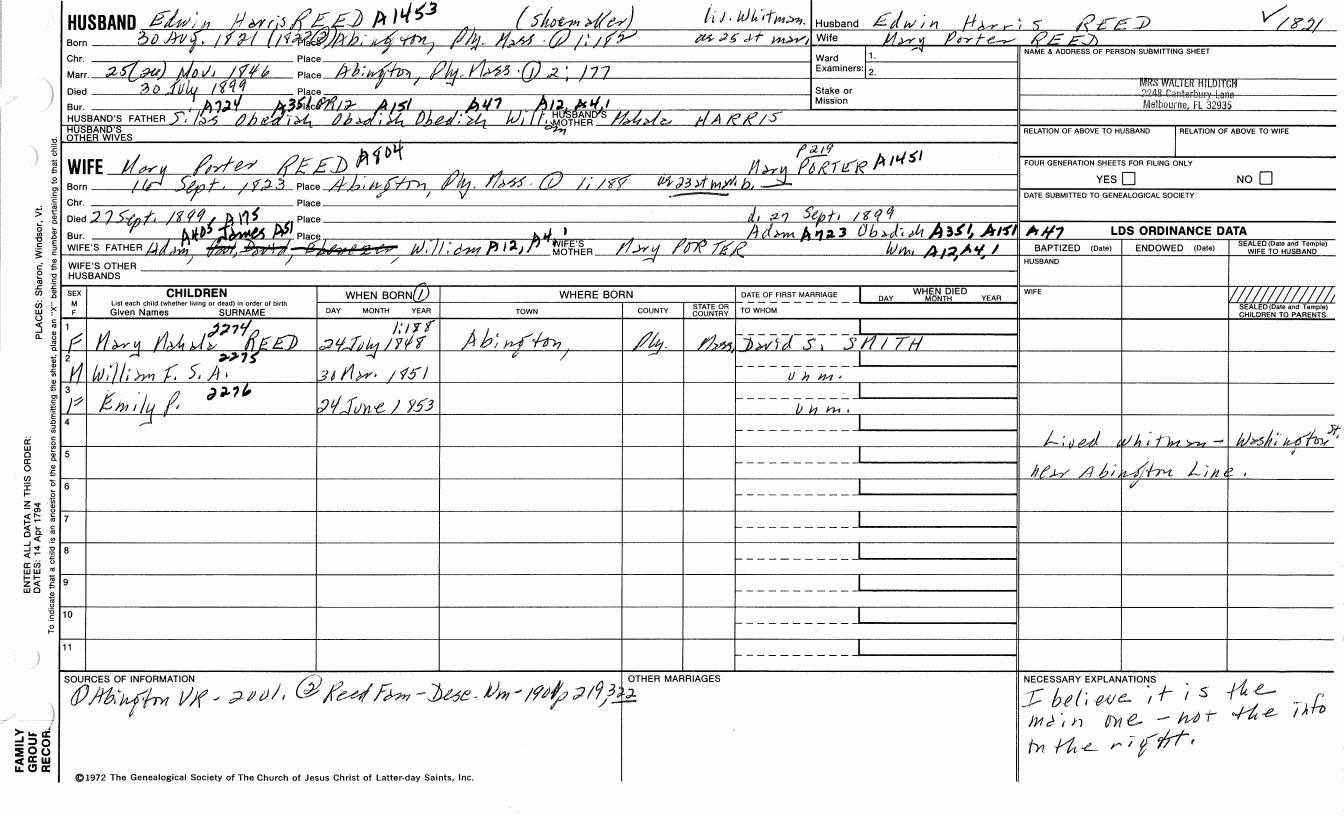 HUSBAND Edwin Harris REED A1453 (Shoemaker) liv. Whitman.
Born 30 Aug. 1821 (1822②) Place Abington, Ply. Mass. ① 1:188 as 25 at mar.
Chr. Place
Marr. 25(26) Nov. 1846 Place Abington, Ply. Mass. ① 2:177
Died 30 July 1899
Bur. A724 A351 A151 A47 A12, A4, 1
HUSBAND'S FATHER Silas Obadiah Obadiah Obadiah William HUSBAND'S MOTHER Mahala HARRIS
HUSBAND'S OTHER WIVES
Husband Edwin Harris REED ✓ 1821
Wife Mary Porter REED
Ward Examiners: 1.
2.
Stake or Mission
NAME & ADDRESS OF PERSON SUBMITTING SHEET
MRS WALTER HILDITCH
2248 Canterbury Lane
Melbourne, FL 32935
RELATION OF ABOVE TO HUSBAND RELATION OF ABOVE TO WIFE
FOUR GENERATION SHEETS FOR FILING ONLY
YES NO
DATE SUBMITTED TO GENEALOGICAL SOCIETY
P 219
WIFE Mary Porter REED A804 Mary PORTER A1451
Born 16 Sept. 1823 Place Abington, Ply. Mass. ① 1:188 as 23 at mar. b.
Chr. Place
Died 27 Sept. 1899 A175 Place d. 27 Sept. 1899
Bur. A405 James A51 Place Adam A723 Obadiah A351, A151 A47
WIFE'S FATHER Adam, David, Ebenezer William A12, A4, 1 WIFE'S MOTHER Mary PORTER Wm. A12, A4, 1
WIFE'S OTHER HUSBANDS
LDS ORDINANCE DATA
BAPTIZED (Date) ENDOWED (Date) SEALED (Date and Temple) WIFE TO HUSBAND
HUSBAND
WIFE
SEALED (Date and Temple) CHILDREN TO PARENTS
SEX M F CHILDREN List each child (whether living or dead) in order of birth Given Names SURNAME
WHEN BORN ① DAY MONTH YEAR
WHERE BORN TOWN COUNTY STATE OR COUNTRY
DATE OF FIRST MARRIAGE TO WHOM
WHEN DIED DAY MONTH YEAR
2274 1:188
1 F Mary Mahala REED 24 July 1848 Abington, Ply. Mass. David S. SMITH
2275
2 M William F. S. A. 30 Mar. 1851 unm.
2276
3 F Emily P. 24 June 1853 unm.
4
5
6
7
8
9
10
11
Lived Whitman - Washington St.
near Abington Line.
SOURCES OF INFORMATION
① Abington VR - 2001. ② Reed Fam - Desc. Wm - 1901 p 219, 322
OTHER MARRIAGES
NECESSARY EXPLANATIONS
I believe it is the
main one - not the info
to the right.
©1972 The Genealogical Society of The Church of Jesus Christ of Latter-day Saints, Inc.
FAMILY GROUP RECOR
ENTER ALL DATA IN THIS ORDER:
DATES: 14 Apr 1794
PLACES: Sharon, Windsor, Vt.
To indicate that a child is an ancestor of the person submitting the sheet, place an "X" behind the number pertaining to that child.